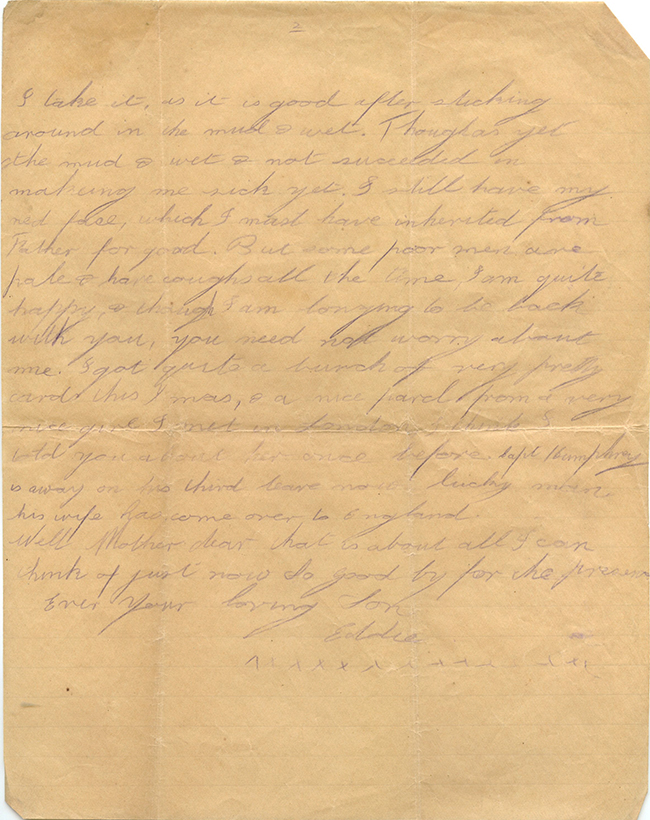 2
I take it, as it is good after sticking
around in the mud & wet. Though as yet
the mud & wet & not succeeded in
making me sick yet. I still have my
red face, which I must have inherited from
Father for good. But some poor men are
pale & have coughs all the time, I am quite
happy, & though I am longing to be back
with you, you need not worry about
me. I got quite a bunch of very pretty
cards this Xmas, & a nice parcel from a very
nice girl I met in London I think I
told you about her once before. Capt Humphrey
is away on his third leave now lucky man
his wife has come over to England.
Well Mother dear that is about all I can
think of just now so good by for the present
Ever Your loving Son
Eddie
x x x x x x x x x x x x